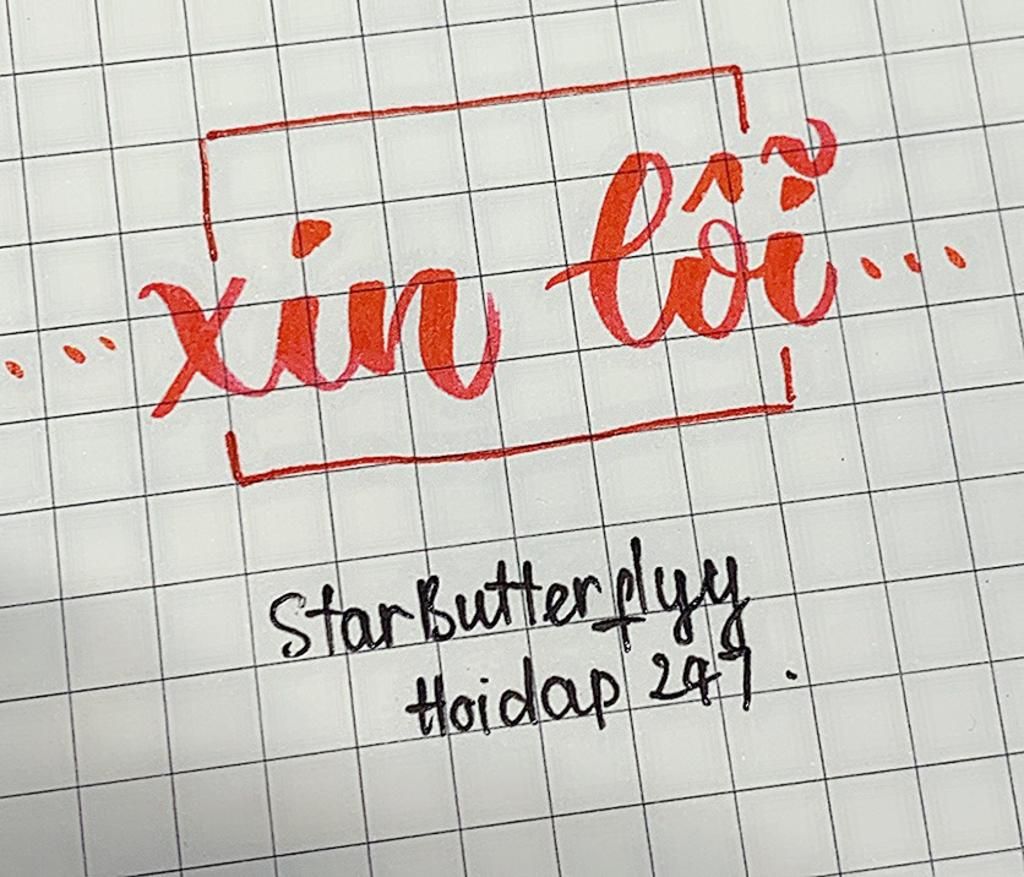 ... xin lỗi ...
StarButterflyy
Hoidap 247.